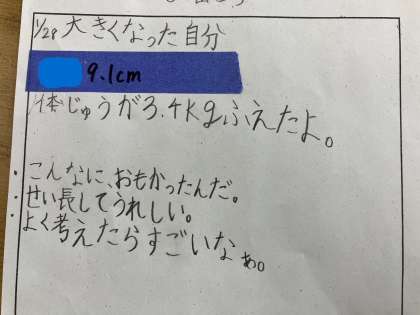 1/29 大きくなった自分
9.1cm
体じゅうが3.4kgふえたよ。
こんなに、おもかったんだ。
せい長してうれしい。
よく考えたらすごいなぁ。